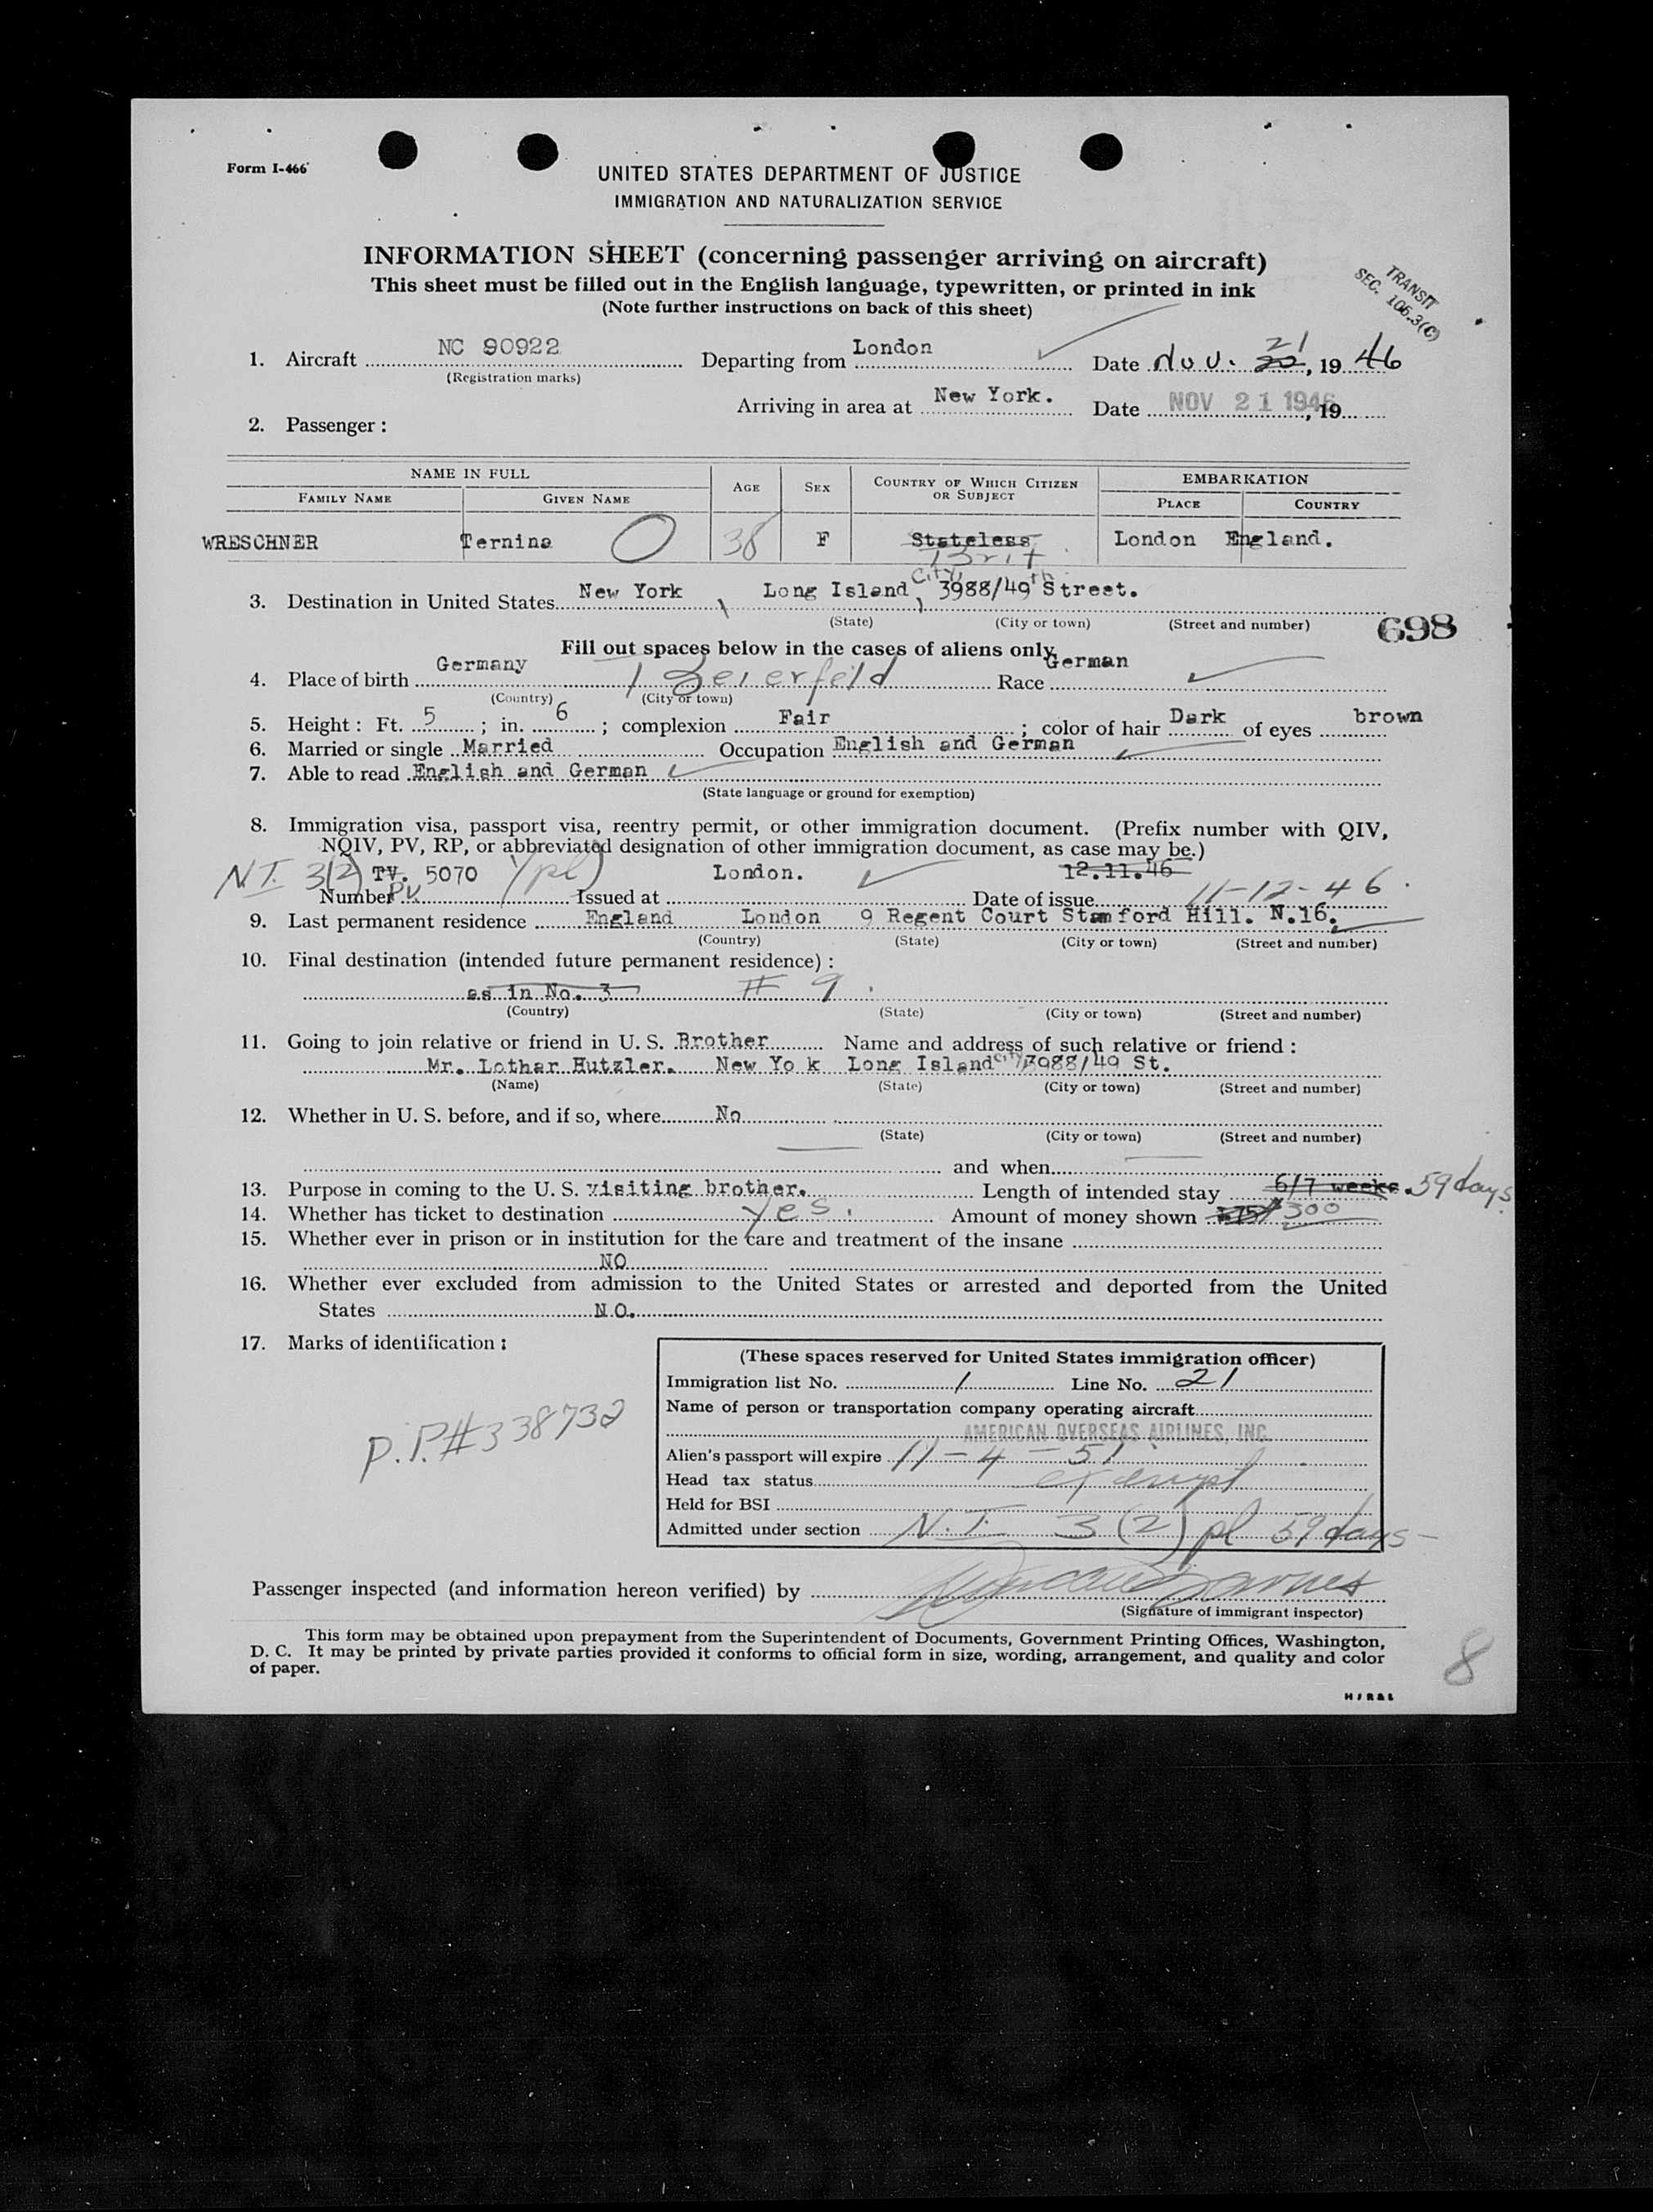 Form I-466
UNITED STATES DEPARTMENT OF JUSTICE
IMMIGRATION AND NATURALIZATION SERVICE
INFORMATION SHEET (concerning passenger arriving on aircraft)
This sheet must be filled out in the English language, typewritten, or printed in ink
(Note further instructions on back of this sheet)
TRANSIT
SEC. 106.3(C)
1. Aircraft NC 90922 Departing from London Date Nov. 22 21, 1946
(Registration marks)
Arriving in area at New York. Date NOV 21 1946, 19
2. Passenger :
NAME IN FULL AGE SEX COUNTRY OF WHICH CITIZEN OR SUBJECT EMBARKATION
FAMILY NAME GIVEN NAME PLACE COUNTRY
WRESCHNER Ternina 38 F Stateless London England.
Brit
3. Destination in United States New York Long Island City, 3988/49th Street.
(State) (City or town) (Street and number)
698
Fill out spaces below in the cases of aliens only
4. Place of birth Germany Beierfeld Race German
(Country) (City or town)
5. Height : Ft. 5 ; in. 6 ; complexion Fair ; color of hair Dark of eyes brown
6. Married or single Married Occupation English and German
7. Able to read English and German
(State language or ground for exemption)
8. Immigration visa, passport visa, reentry permit, or other immigration document. (Prefix number with QIV,
NQIV, PV, RP, or abbreviated designation of other immigration document, as case may be.)
N.I. 3(2) TV. 5070 London. 12.11.46
Number PV Issued at Date of issue 11-12-46.
9. Last permanent residence England London 9 Regent Court Stamford Hill. N.16.
(Country) (State) (City or town) (Street and number)
10. Final destination (intended future permanent residence) :
as in No. 3 # 9.
(Country) (State) (City or town) (Street and number)
11. Going to join relative or friend in U. S. Brother Name and address of such relative or friend :
Mr. Lothar Hutzler. New Yo k Long Island City 3988/49 St.
(Name) (State) (City or town) (Street and number)
12. Whether in U. S. before, and if so, where No
(State) (City or town) (Street and number)
and when
13. Purpose in coming to the U. S. visiting brother. Length of intended stay 6/7 weeks. 59 days.
14. Whether has ticket to destination yes. Amount of money shown $300
15. Whether ever in prison or in institution for the care and treatment of the insane
NO
16. Whether ever excluded from admission to the United States or arrested and deported from the United
States NO.
17. Marks of identification :
P.P.#338732
(These spaces reserved for United States immigration officer)
Immigration list No. 1 Line No. 21
Name of person or transportation company operating aircraft
AMERICAN OVERSEAS AIRLINES, INC.
Alien's passport will expire 11-4-51
Head tax status exempt
Held for BSI
Admitted under section N.I. 3(2) pl 59 days
Passenger inspected (and information hereon verified) by
(Signature of immigrant inspector)
This form may be obtained upon prepayment from the Superintendent of Documents, Government Printing Offices, Washington,
D. C. It may be printed by private parties provided it conforms to official form in size, wording, arrangement, and quality and color
of paper.
8